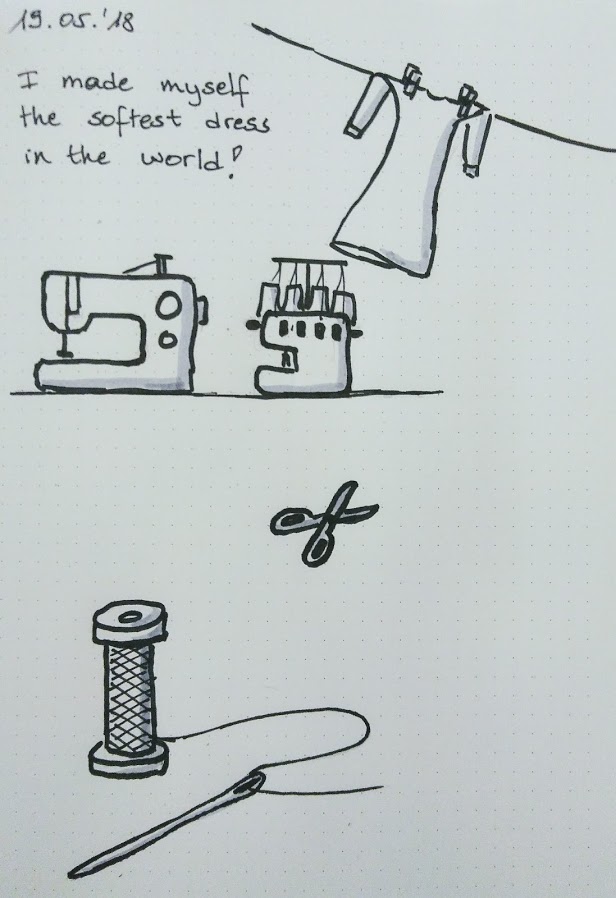 19.05.'18
I made myself
the softest dress
in the world!